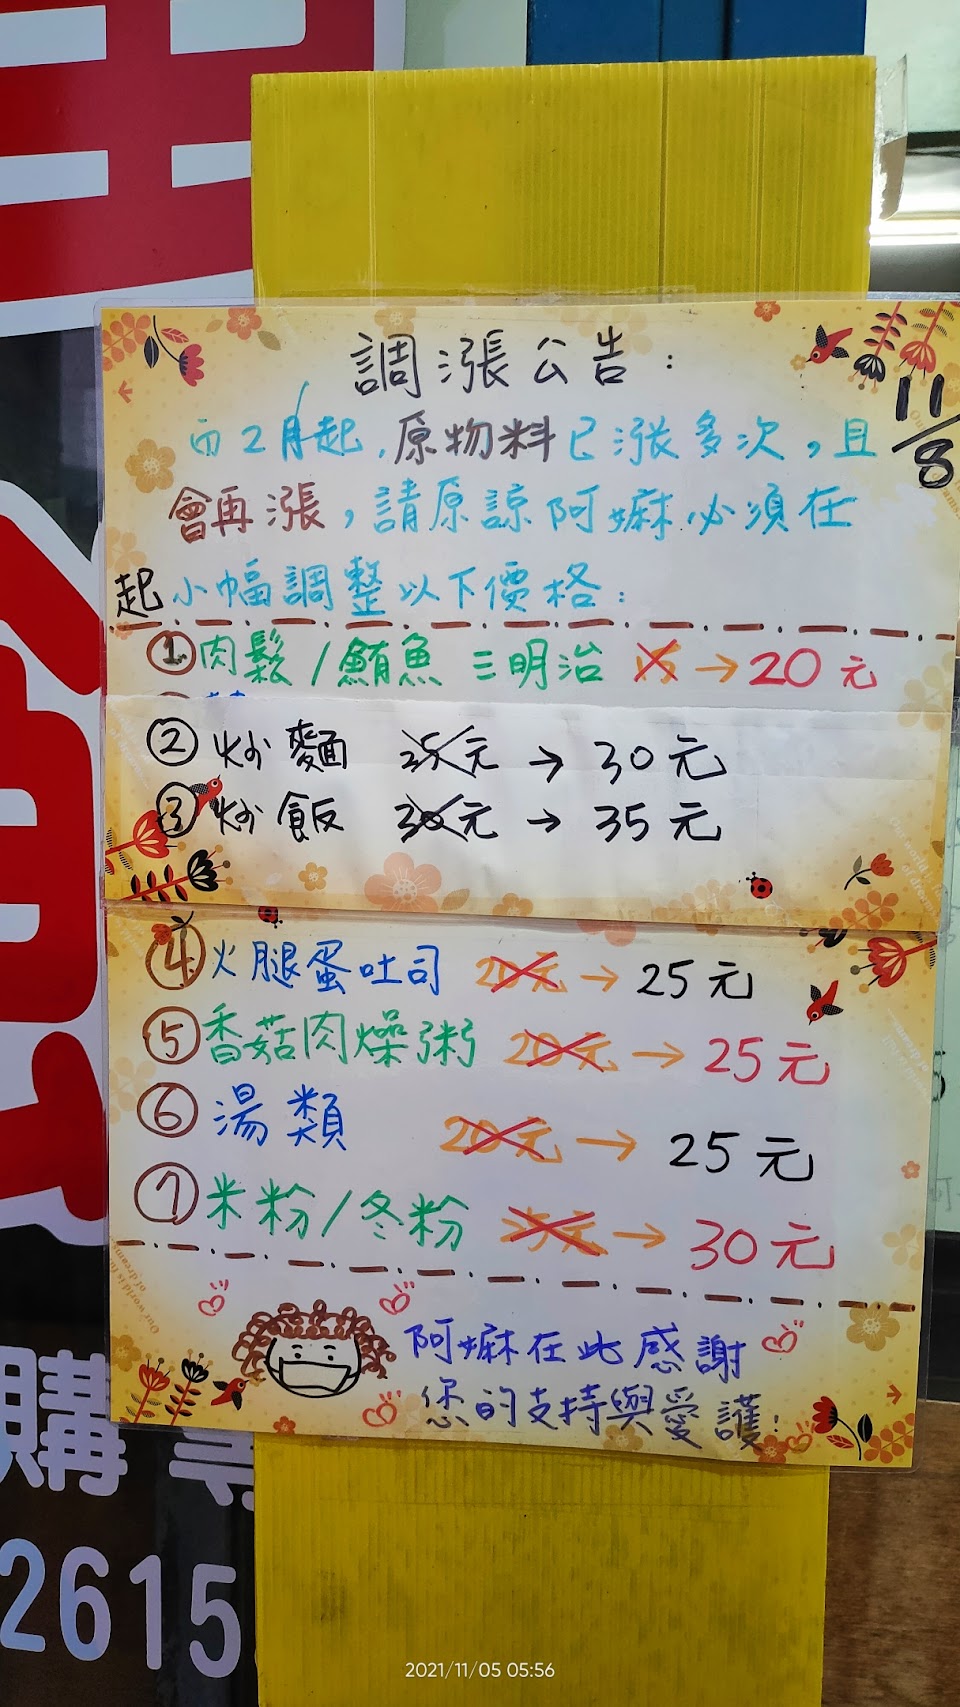 調漲公告:
由2月起,原物料已漲多次,且
會再漲,請原諒阿嫲必須在 11/8
起小幅調整以下價格:
① 肉鬆/鮪魚 三明治 15 → 20元
② 炒麵 25元 → 30元
③ 炒飯 30元 → 35元
④ 火腿蛋吐司 20元 → 25元
⑤ 香菇肉燥粥 20元 → 25元
⑥ 湯類 20元 → 25元
⑦ 米粉/冬粉 → 30元
阿嫲在此感謝
您的支持與愛護!
購
2615
2021/11/05 05:56